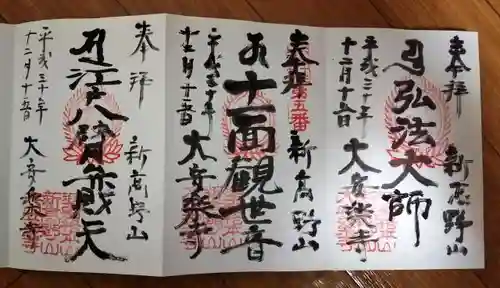 奉拝
新高野山
弘法大師
平成三十年
十二月十六日
大安楽寺
奉拝
第五番
新高野山
十一面観世音
平成三十年
十二月十六日
大安楽寺
奉拝
新高野山
江戸八臂弁財天
平成三十年
十二月十六日
大安楽寺